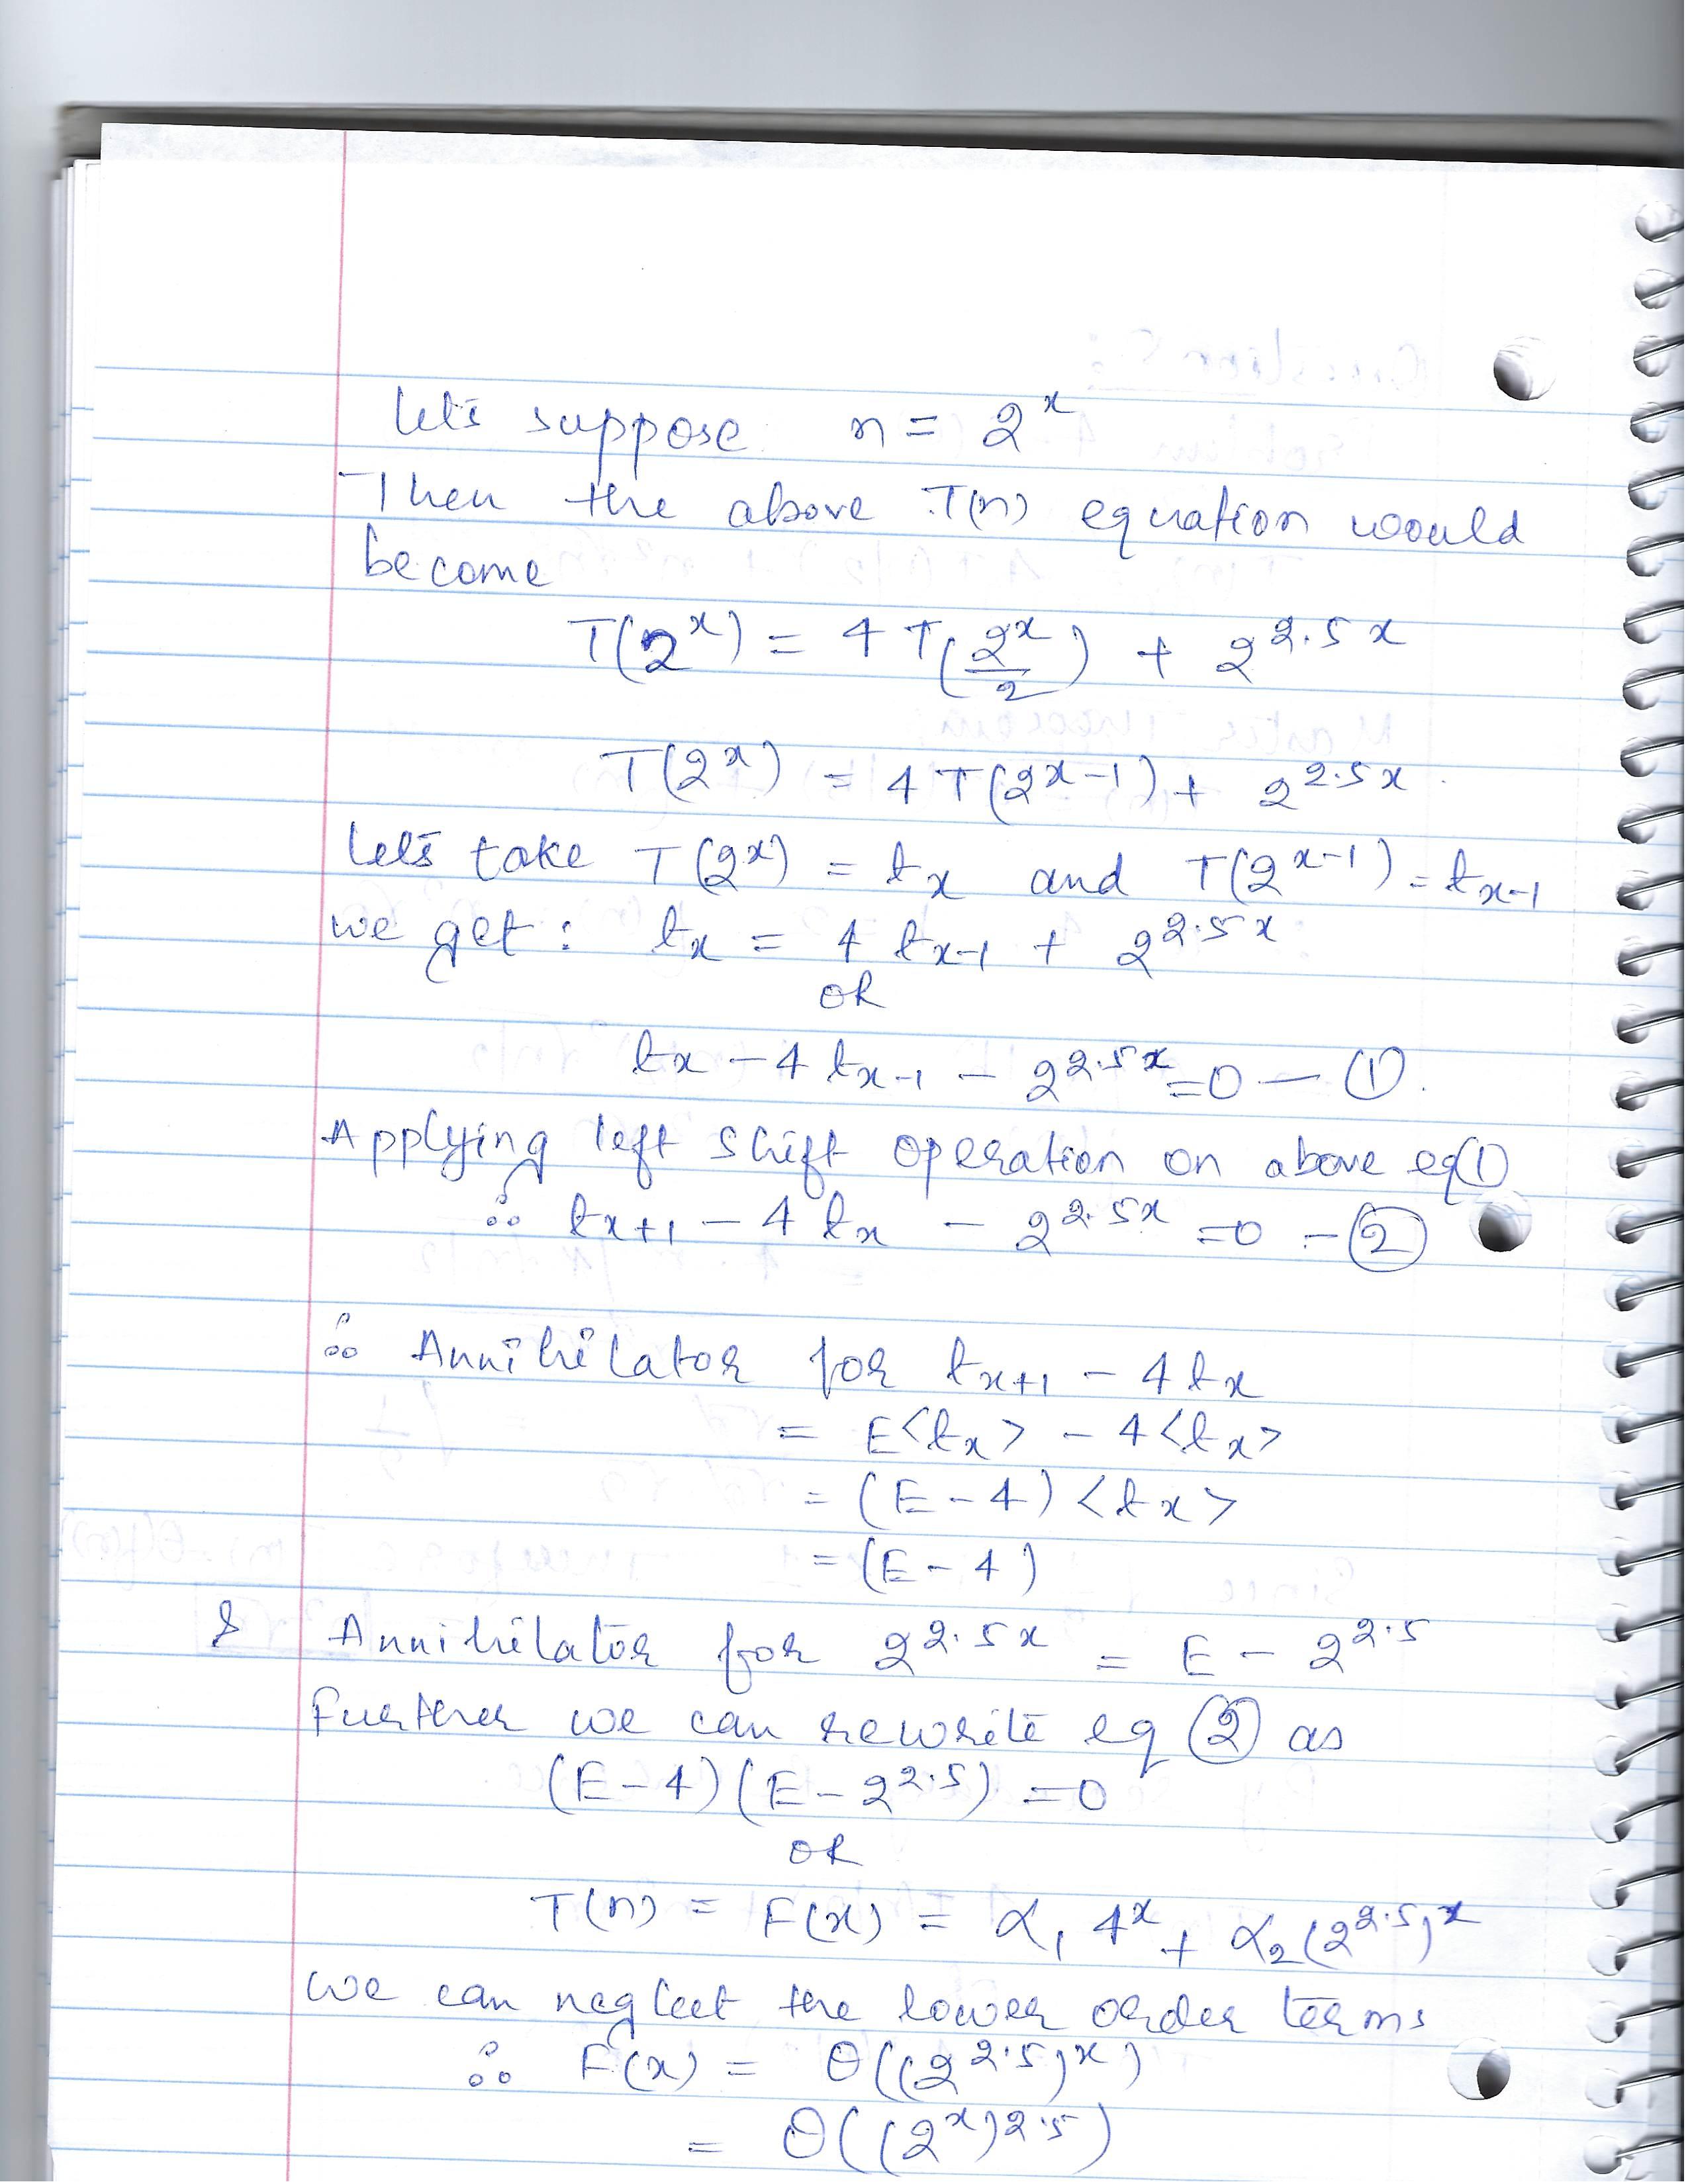 Let's suppose n = 2^x
Then the above T(n) equation would
become
T(2^x) = 4 T(2^x/2) + 2^2.5x
T(2^x) = 4 T(2^x-1) + 2^2.5x
Let's take T(2^x) = t_x and T(2^x-1) = t_x-1
we get : t_x = 4 t_x-1 + 2^2.5x
OR
t_x - 4 t_x-1 - 2^2.5x = 0 — ①
Applying left shift operation on above eq①
∴ t_x+1 - 4 t_x - 2^2.5x = 0 - ②
∴ Annihilator for t_x+1 - 4 t_x
= E<t_x> - 4<t_x>
= (E - 4) <t_x>
= (E - 4)
& Annihilator for 2^2.5x = E - 2^2.5
Further we can rewrite eq ② as
(E - 4)(E - 2^2.5) = 0
OR
T(n) = F(x) = α₁ 4^x + α₂ (2^2.5)^x
we can neglect the lower order terms
∴ F(x) = Θ((2^2.5)^x)
= Θ((2^x)^2.5)